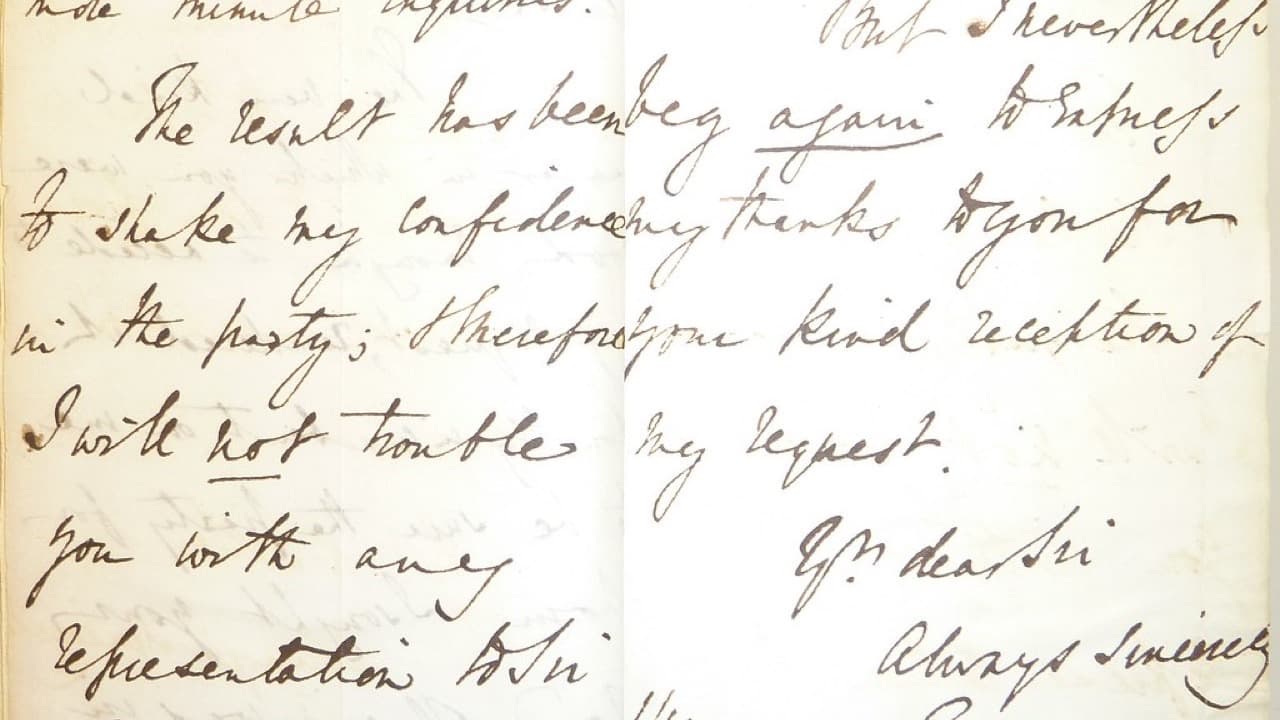 more minute inquiries.
The result has been
to shake my confidence
in the party; & therefore
I will not trouble
you with any
representation to Sir
But I nevertheless
beg again to express
my thanks to you for
your kind reception of
my request.
Yrs. dear Sir
Always sincerely